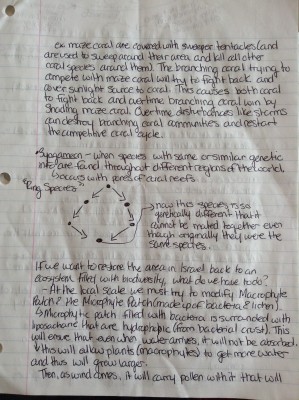 ex maze coral are covered with sweeper tentacles (and
are used to sweep around their area and kill all other
coral species around them). The branching coral trying to
compete with maze coral will try to fight back and
cover sunlight source to coral. This causes both coral
to fight back and overtime branching coral win by
shading maze coral. Overtime disturbances like storms
can destroy branching coral communities and restart
the competitive coral cycle.
- when species with same or similar genetic
info are found throughout different regions of the world.
↳ occurs with pores of coral reefs
"Ring Species"
→ now this species is so
genetically different that it
cannot be mated together even
though originally they were the
same species.
If we want to restore the area in Israel back to an
ecosystem filled with biodiversity, what do we have to do?
- At the local scale we must try to modify Macrophyte
Patch & the Microphyte Patch (made up of bacteria & lichen).
↳ Microphytic patch filled with bacteria is surrounded with
that are hydrophobic (from bacterial crust). This
will ensure that even when water arrives, it will not be absorbed.
↳ this will allow plants (macrophytes) to get more water
and thus will grow larger.
Then, as wind comes, it will carry pollen with it that will